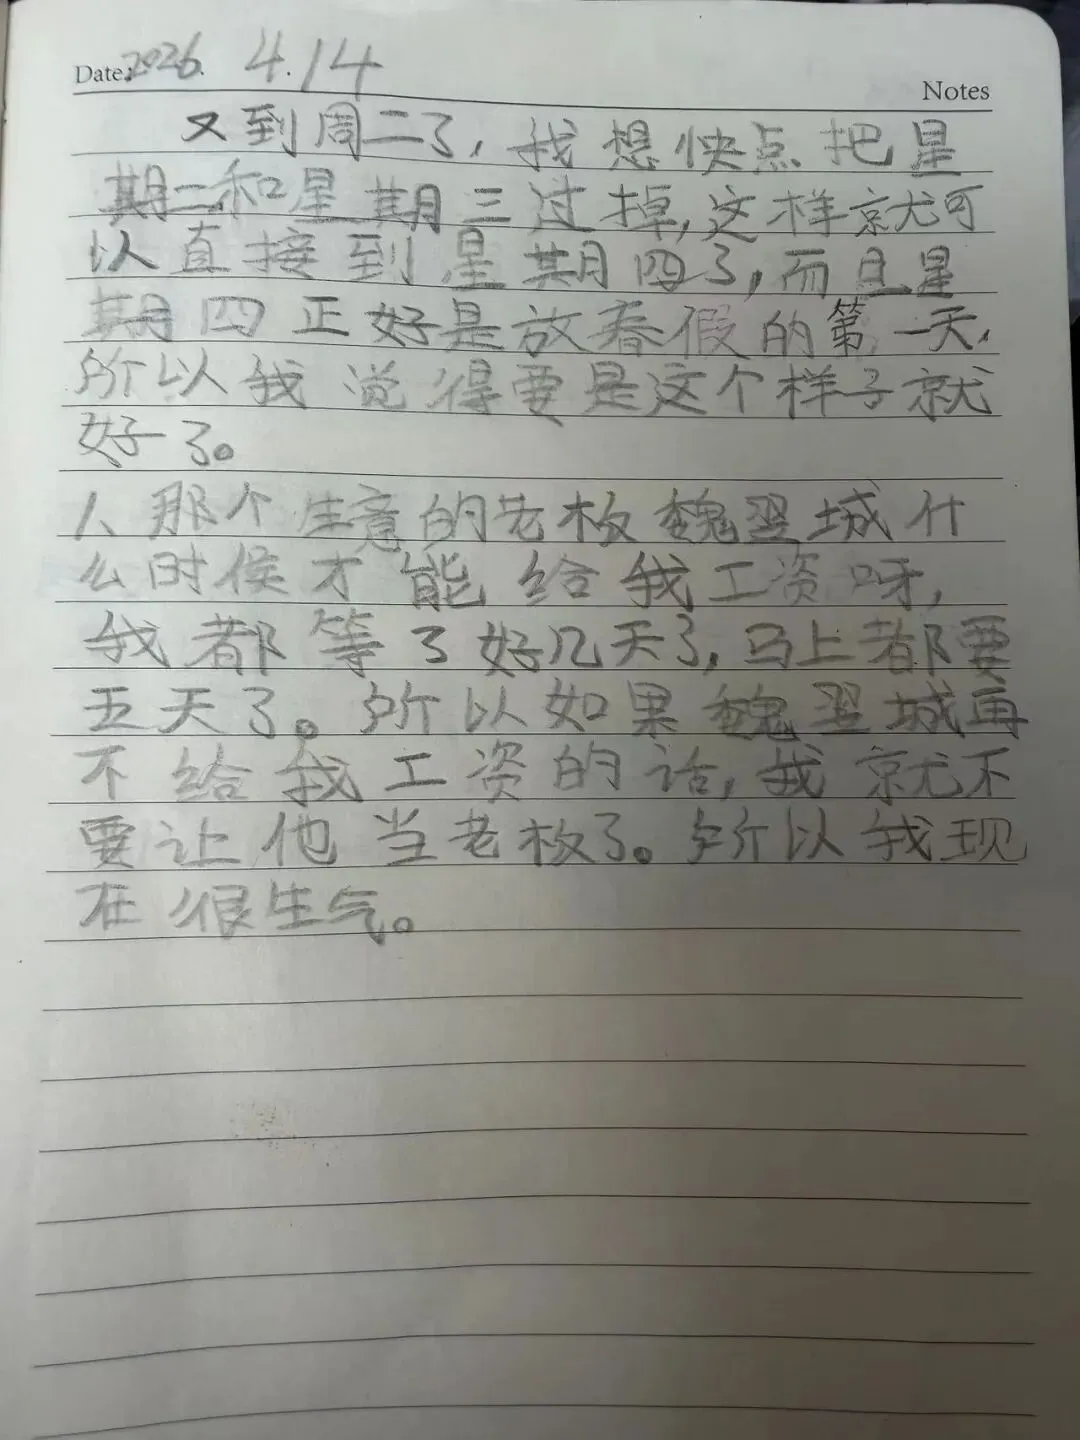 Date: 2026. 4.14
Notes
又到周二了,我想快点把星
期二和星期三过掉,这样就可
以直接到星期四了,而且星
期四正好是放春假的第一天,
所以我觉得要是这个样子就
好了。
人那个生意的老板魏翌城什
么时侯才能给我工资呀,
我都等了好几天了,马上都要
五天了。所以如果魏翌城再
不给我工资的话,我就不
要让他当老板了。所以我现
在很生气。